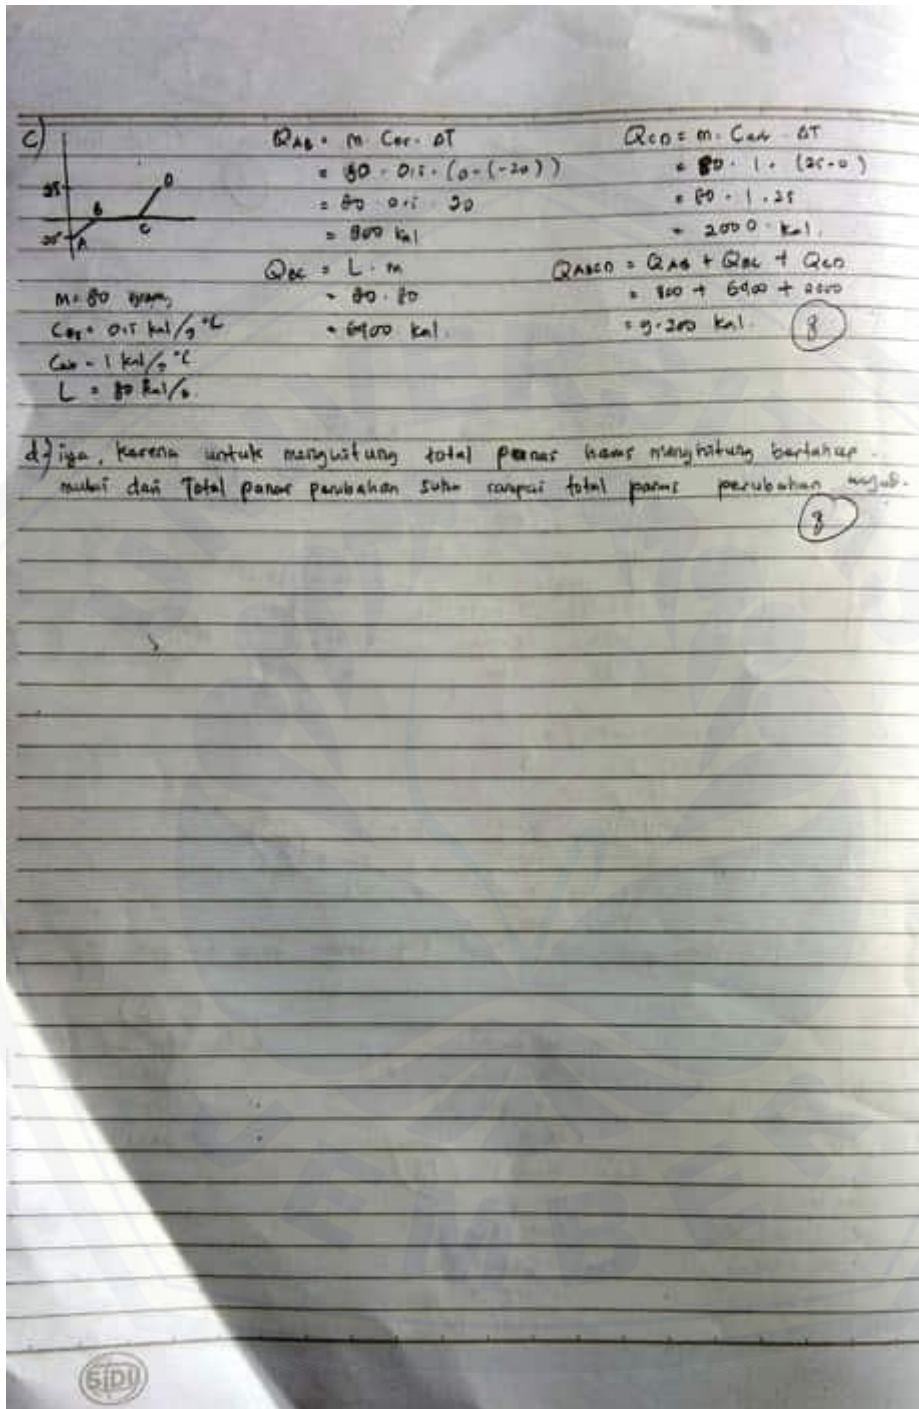 c)
25
-20
A
B
C
D
m = 80 gram
Ces = 0,5 kal/g °C
Cair = 1 kal/g °C
L = 80 kal/g.
QAB = m . Ces . ΔT
= 80 . 0,5 . (0-(-20))
= 80 . 0,5 . 20
= 800 kal
QBC = L . m
= 80 . 80
= 6400 kal.
QCD = m . Cair . ΔT
= 80 . 1 . (25-0)
= 80 . 1 . 25
= 2000 kal.
QABCD = QAB + QBC + QCD
= 800 + 6400 + 2000
= 9.200 kal.
8
d) iya, karena untuk menghitung total panas harus menghitung bertahap.
mulai dari Total panas perubahan suhu sampai total panas perubahan wujud.
8
SIDU
UNIVERSITAS
JEMBER